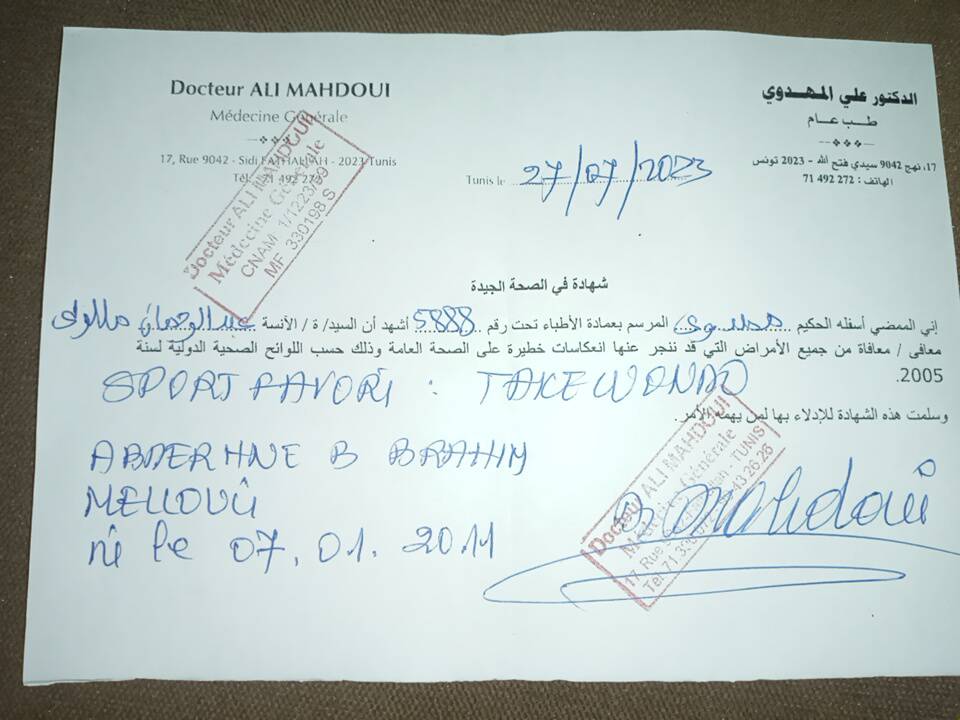 Docteur ALI MAHDOUI
Médecine Générale
17, Rue 9042 - Sidi FATHALLAH - 2023 Tunis
Tél. : 71 492 272
الدكتور علي المهدوي
طب عام
17، نهج 9042 سيدي فتح الله - 2023 تونس
الهاتف : 272 492 71
Tunis le 27/07/2023
Docteur ALI MAHDOUI
Médecine Générale
CNAM 1/1223/99
MF 330198 S
شهادة في الصحة الجيدة
إني الممضي أسفله الحكيم مهدوي المرسم بعمادة الأطباء تحت رقم 5888 أشهد أن السيد/ ة / الآنسة عبد الرحمان ملولي
معافى / معافاة من جميع الأمراض التي قد تنجر عنها انعكاسات خطيرة على الصحة العامة وذلك حسب اللوائح الصحية الدولية لسنة
2005.
SPORT FAVORI : TAKEWONDO
وسلمت هذه الشهادة للإدلاء بها لمن يهمه الأمر.
ABDERHNE B BRAHIM
MELLOULI
né le 07.01.2011
Docteur ALI MAHDOUI
Médecine Générale
17 Rue TUNIS
Tél 71 43.26.26
Mahdoui